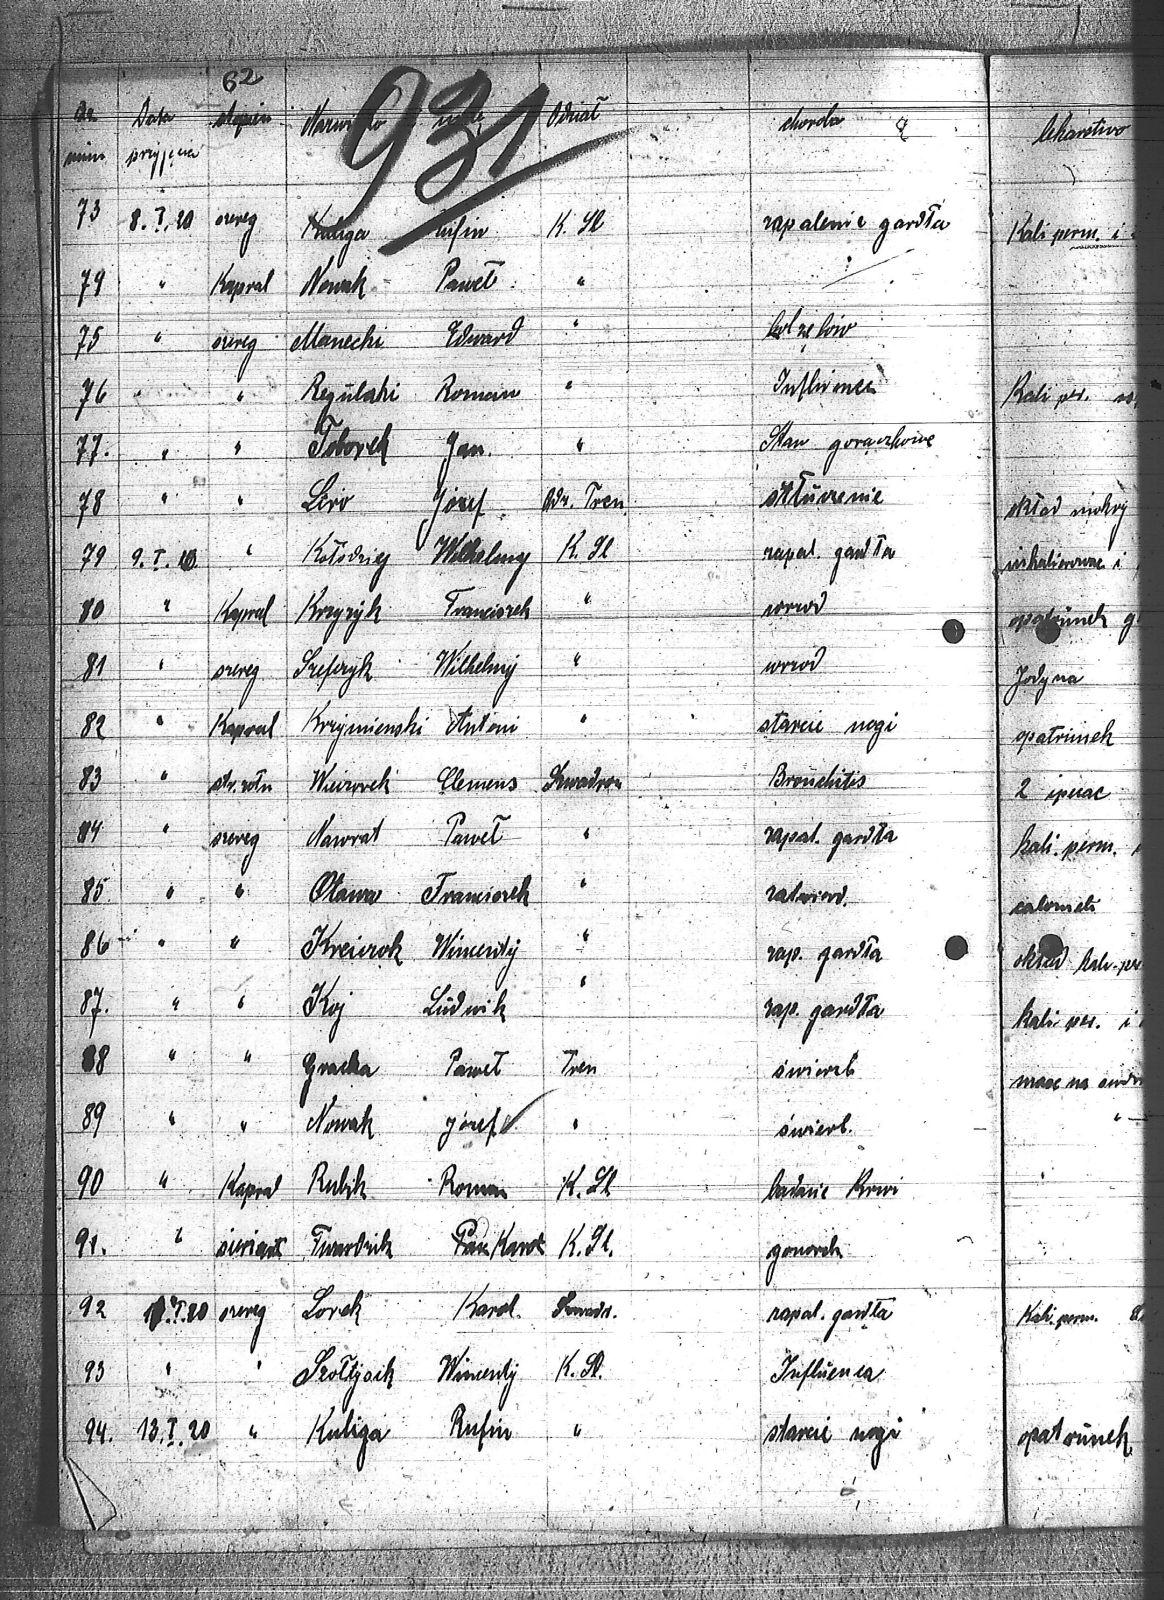 62
931
Nr. Data stopień Nazwisko imię Odział choroba lekarstwo
num przyjęcia
73 8.I.20 szereg Kuliga Rufin K. Sl zapalenie gardła Kali perm. i
74 " Kapral Nowak Paweł "
75 " szereg Manecki Edward " bol zębów
76 " " Regulski Roman " Influenca Kali per.
77. " " Toborek Jan. " Stan gorączkowe
78 " " Józef Odz. Tren. stłuczenie okład mokry
79 9.I. " Kołodziej Wilhelmy K. Sl zapal. gardła i
80 " Kapral Krzyżyk Franciszek " wrzod opatrunek
81 " szereg Szefczyk Wilhelmy " wrzod Jodyna
82 " Kapral Krzymienski Antoni " starcie nogi opatrunek
83 " Wieczorek Clemens Szwadron Bronchitis 2 ipecac
84 " szereg Nawrat Paweł " zapal. gardła kali. perm.
85 " " Otawa Franciszek " zatward.
86 " " Wincenty " zap. gardła okład kali-per
87. " " Koj Ludwik " zap. gardła kali per. i
88 " " Gracka Paweł Tren swierzb masc na
89 " " Nowak Józef " świerb. "
90 " Kapral Rubik Roman K. Sl badanie Krwi
91. " Twardzik Karol K. Sl.
92 I.20 szereg Lorek Karol. Szwadr. zapal. gardła Kali. perm.
93 " " Szołtysik Wincenty K. Sl. Influenca
94. 13.I.20 " Kuliga Rufin " starcie nogi opatrunek